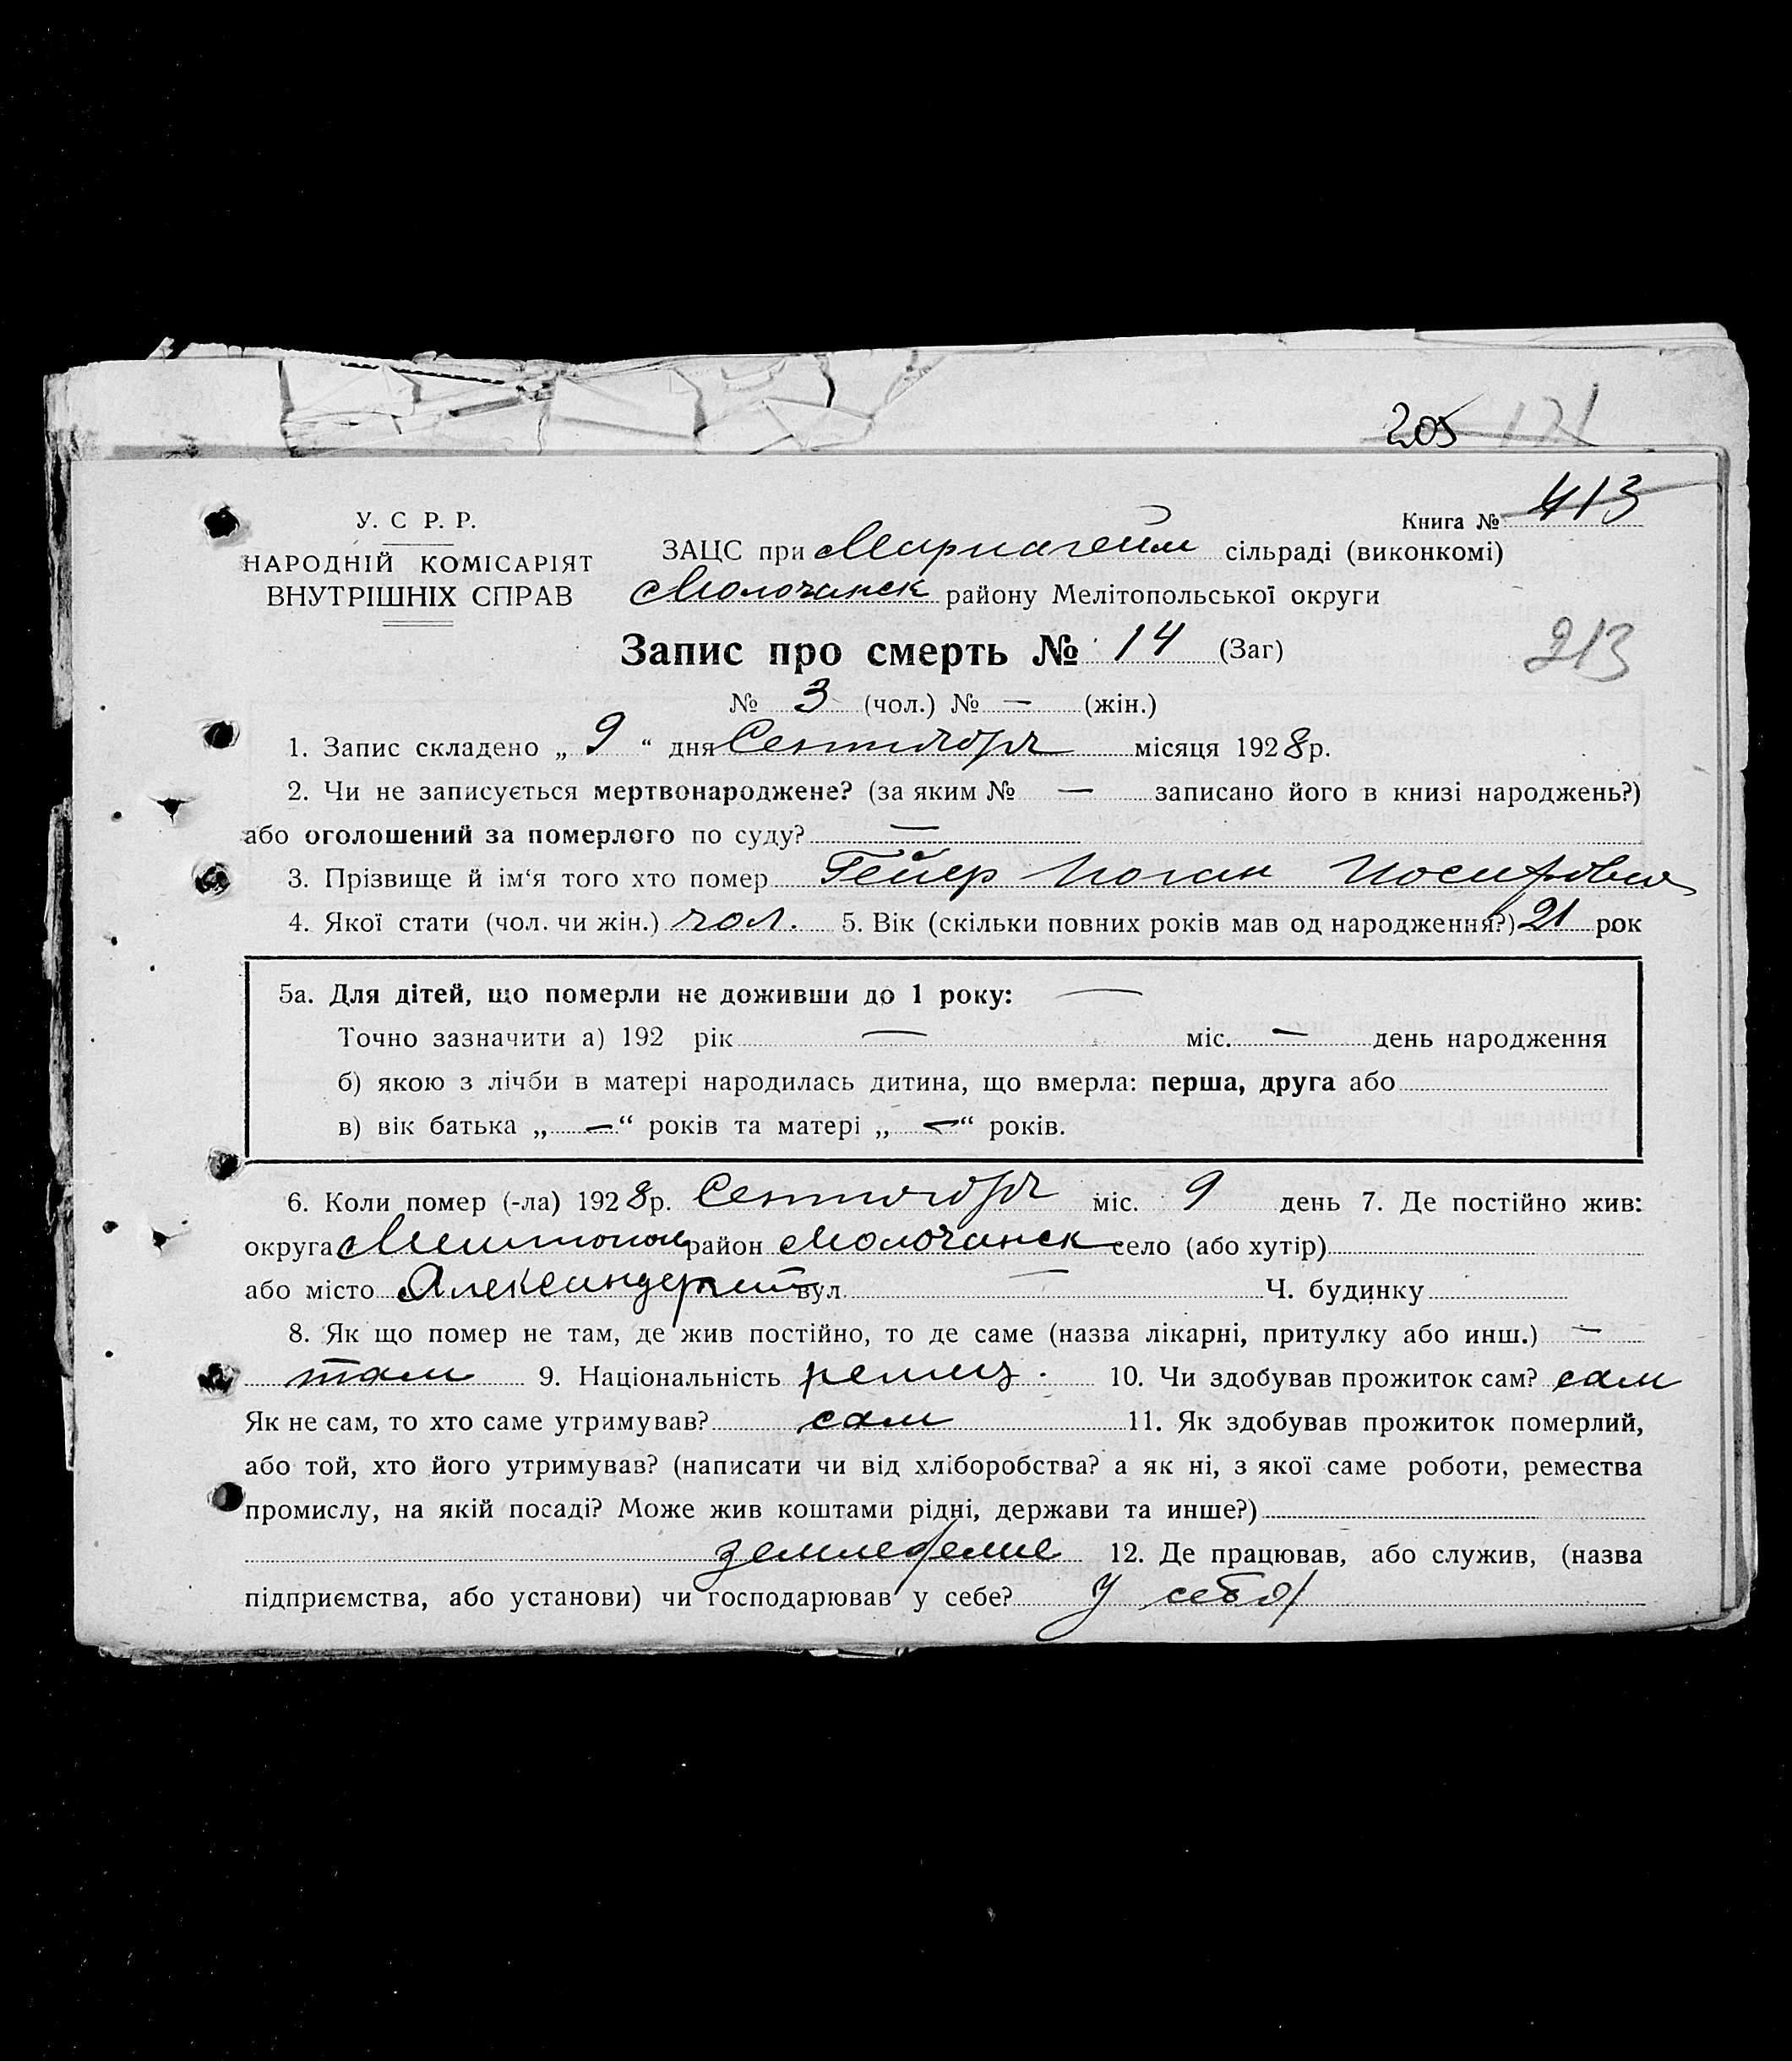 205 171
У. С Р. Р.
Книга № 413
НАРОДНІЙ КОМІСАРІЯТ
ЗАЦС при Мариагейм сільраді (виконкомі)
ВНУТРІШНІХ СПРАВ
Молочанск району Мелітопольської округи
Запис про смерть № 14 (Заг)
213
№ 3 (чол.) № — (жін.)
1. Запис складено „ 9 “ дня Сентября місяця 1928 р.
2. Чи не записується мертвонароджене? (за яким № — записано його в книзі народжень?)
або оголошений за померлого по суду? —
3. Прізвище й ім‘я того хто помер Гейер Иоган Иосифович
4. Якої стати (чол. чи жін.) чол. 5. Вік (скільки повних років мав од народження?) 21 рок
5а. Для дітей, що померли не доживши до 1 року: —
Точно зазначити а) 192 рік — міс. — день народження
б) якою з лічби в матері народилась дитина, що вмерла: перша, друга або
в) вік батька „ — “ років та матері „ — “ років.
6. Коли помер (-ла) 1928 р. Сентября міс. 9 день 7. Де постійно жив:
округа Мелитопол район Молочанск село (або хутір)
або місто вул. — Ч. будинку
8. Як що помер не там, де жив постійно, то де саме (назва лікарні, притулку або инш.) —
там 9. Національність немец. 10. Чи здобував прожиток сам? сам
Як не сам, то хто саме утримував? сам 11. Як здобував прожиток померлий,
або той, хто його утримував? (написати чи від хліборобства? а як ні, з якої саме роботи, ремества
промислу, на якій посаді? Може жив коштами рідні, держави та инше?)
земледелие 12. Де працював, або служив, (назва
підприємства, або установи) чи господарював у себе? У себя